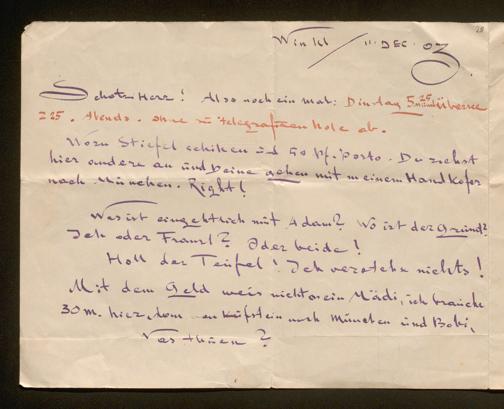 Winkl / 11. DEC. 03.
Schatz Herz! Also noch ein mal: Dinstag 5 25
225. Abends. ohne zu telegrafieren hole ab.
Wozu Stiefel schiken und 50 Pf. Porto. Du ziehst
hier andere an und Deine gehen mit meinem Handkofer
nach München. Right!
Was ist eingehtlich mit Adam? Wo ist der Grund?
Ich oder Franzl? Oder beide!
Holl der Teufel! Ich verstehe nichts!
Mit dem Geld weis nicht so ein Mädi, ich brauche
30 m. hier, dom von Küfstein nach München und Bobi,
Vas thuen?